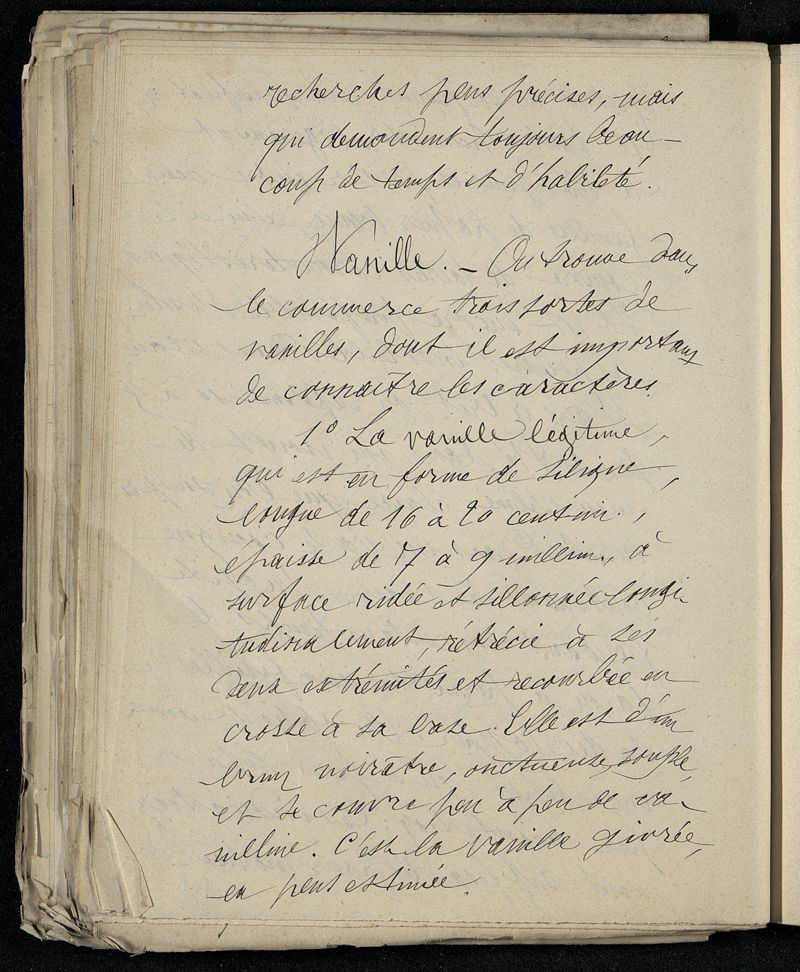 recherches peus précises, mais
qui demandent toujours beau-
coup de temps et d'habileté.
Vanille. - On trouve dans
le commerce trois sortes de
vanilles, dont il est important
de connaître les caractères.
1° La vanille légitime,
qui est en forme de silique,
longue de 16 à 20 centim.,
épaisse de 7 à 9 millim., à
surface ridée et sillonnée longi-
tudinalement, rétrécie à ses
deux extrémités et recourbée en
crosse à sa base. Elle est d'un
brun noirâtre, onctueuse, souple,
et se couvre peu à peu de va-
nilline. C'est la vanille givrée,
peu estimée.